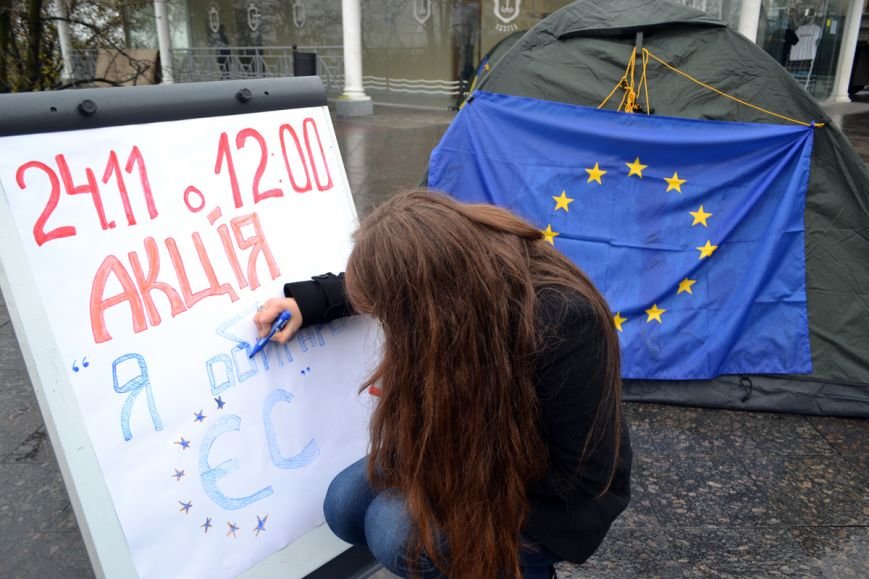 24.11 о 12.00
АКЦІЯ
"Я
ЄС